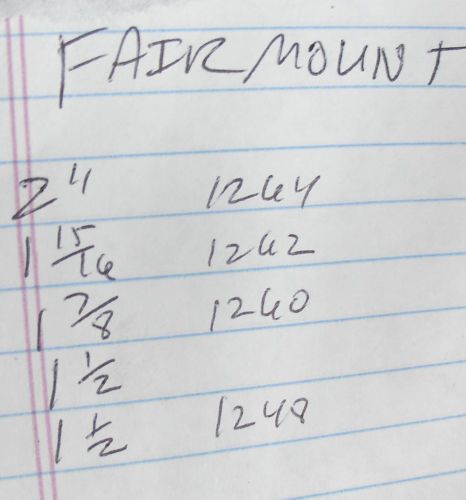 FAIRMOUNT
2" 1264
1 15/16 1262
1 7/8 1260
1 1/2
1 1/2 1248